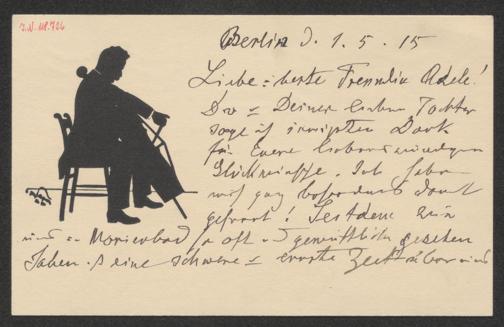 I.N. 118.726
Berlin d. 1.5.15
Liebe beste Freundin Adele!
Dir u Deiner lieben Tochter
sage ich innigsten Dank
für Euere liebenswürdigen
Glückwünsche. Ich habe
mich ganz besonders damit
gefreut! Seitdem wir
uns in Marienbad so oft u gemütlich gesehen
haben ist eine schwere u ernste Zeit über uns